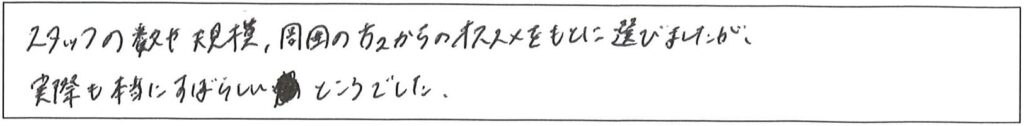 スタッフの数や規模、周囲の方々からのオススメをもとに選びましたが、
実際も本当にすばらしいところでした。